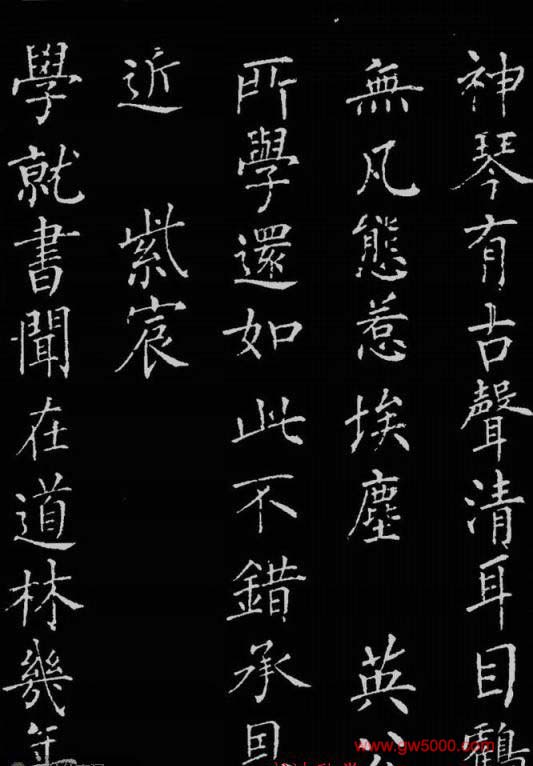 神琴有古聲清耳目鶴
無凡態惹埃塵 英公
所學還如此不錯承恩
近 紫宸
學就書聞在道林幾年
www.gw5000.com